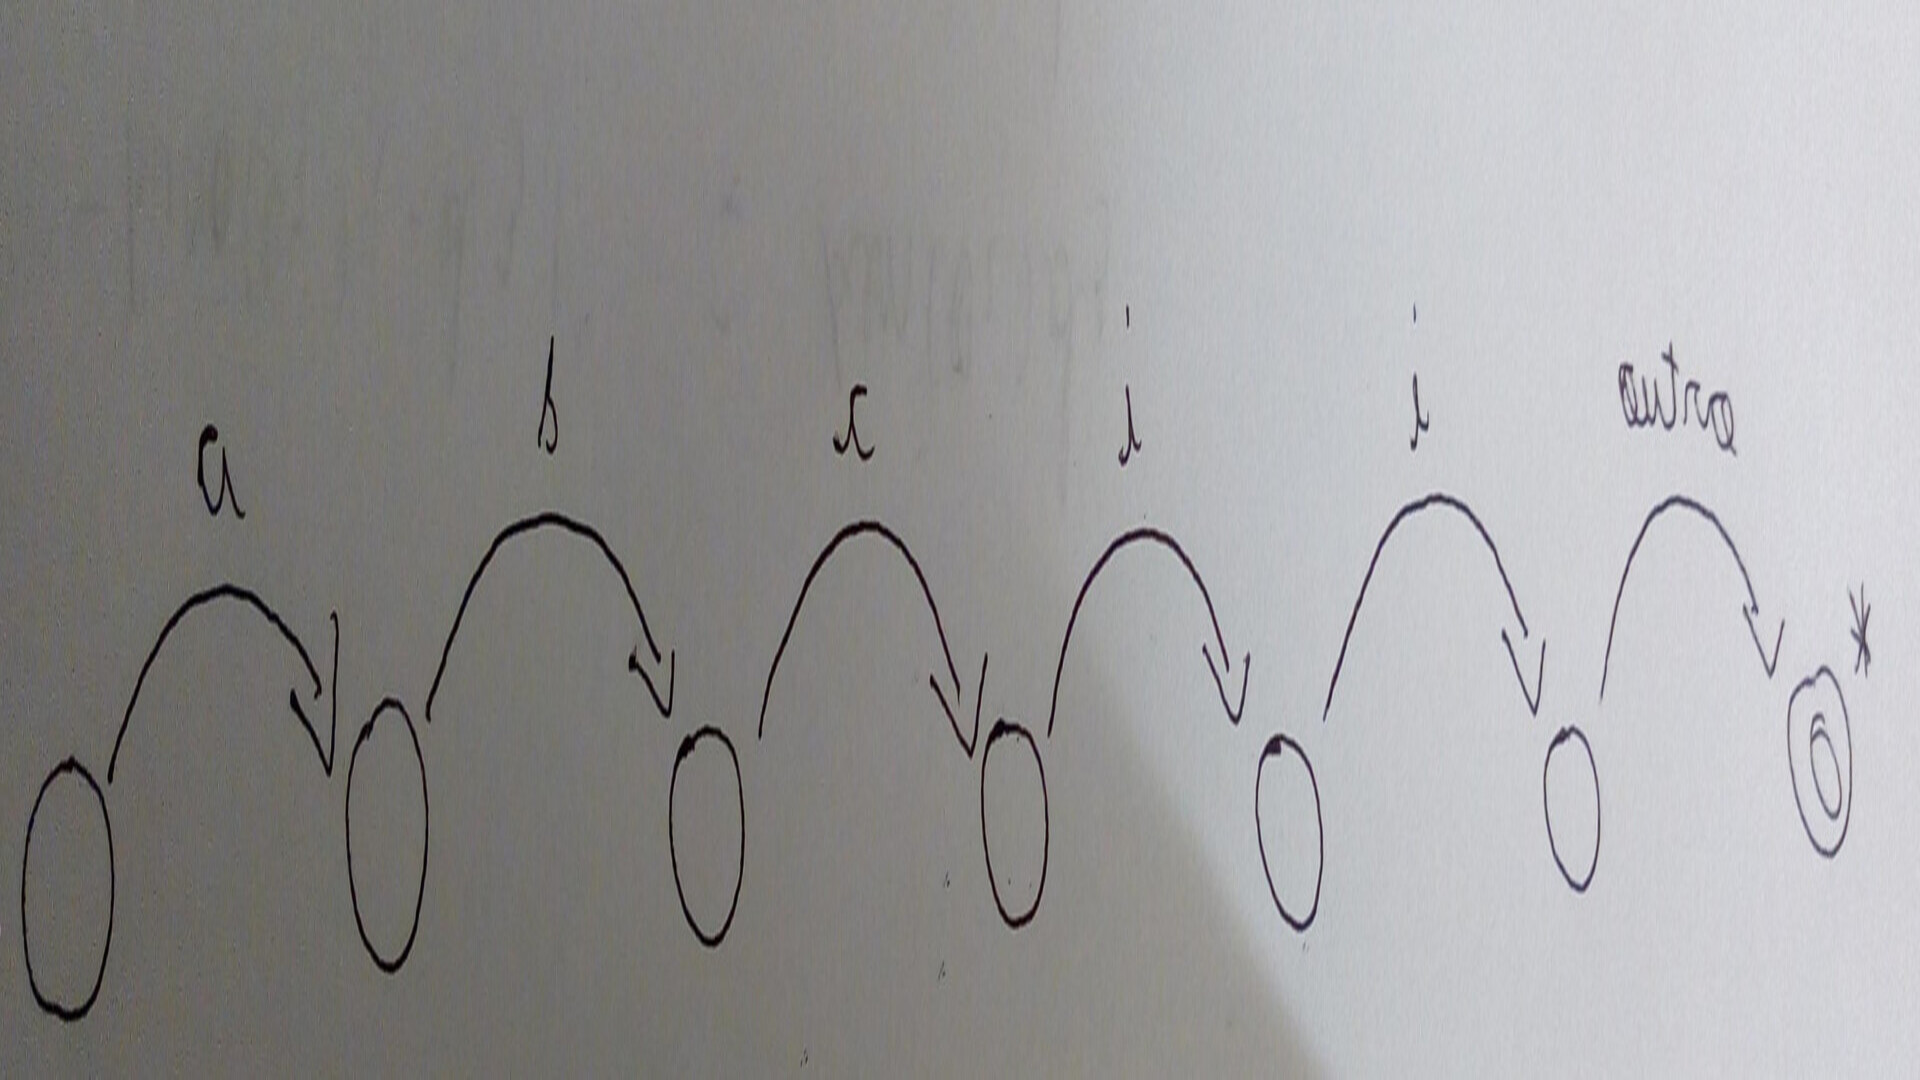 a b c i i outro *